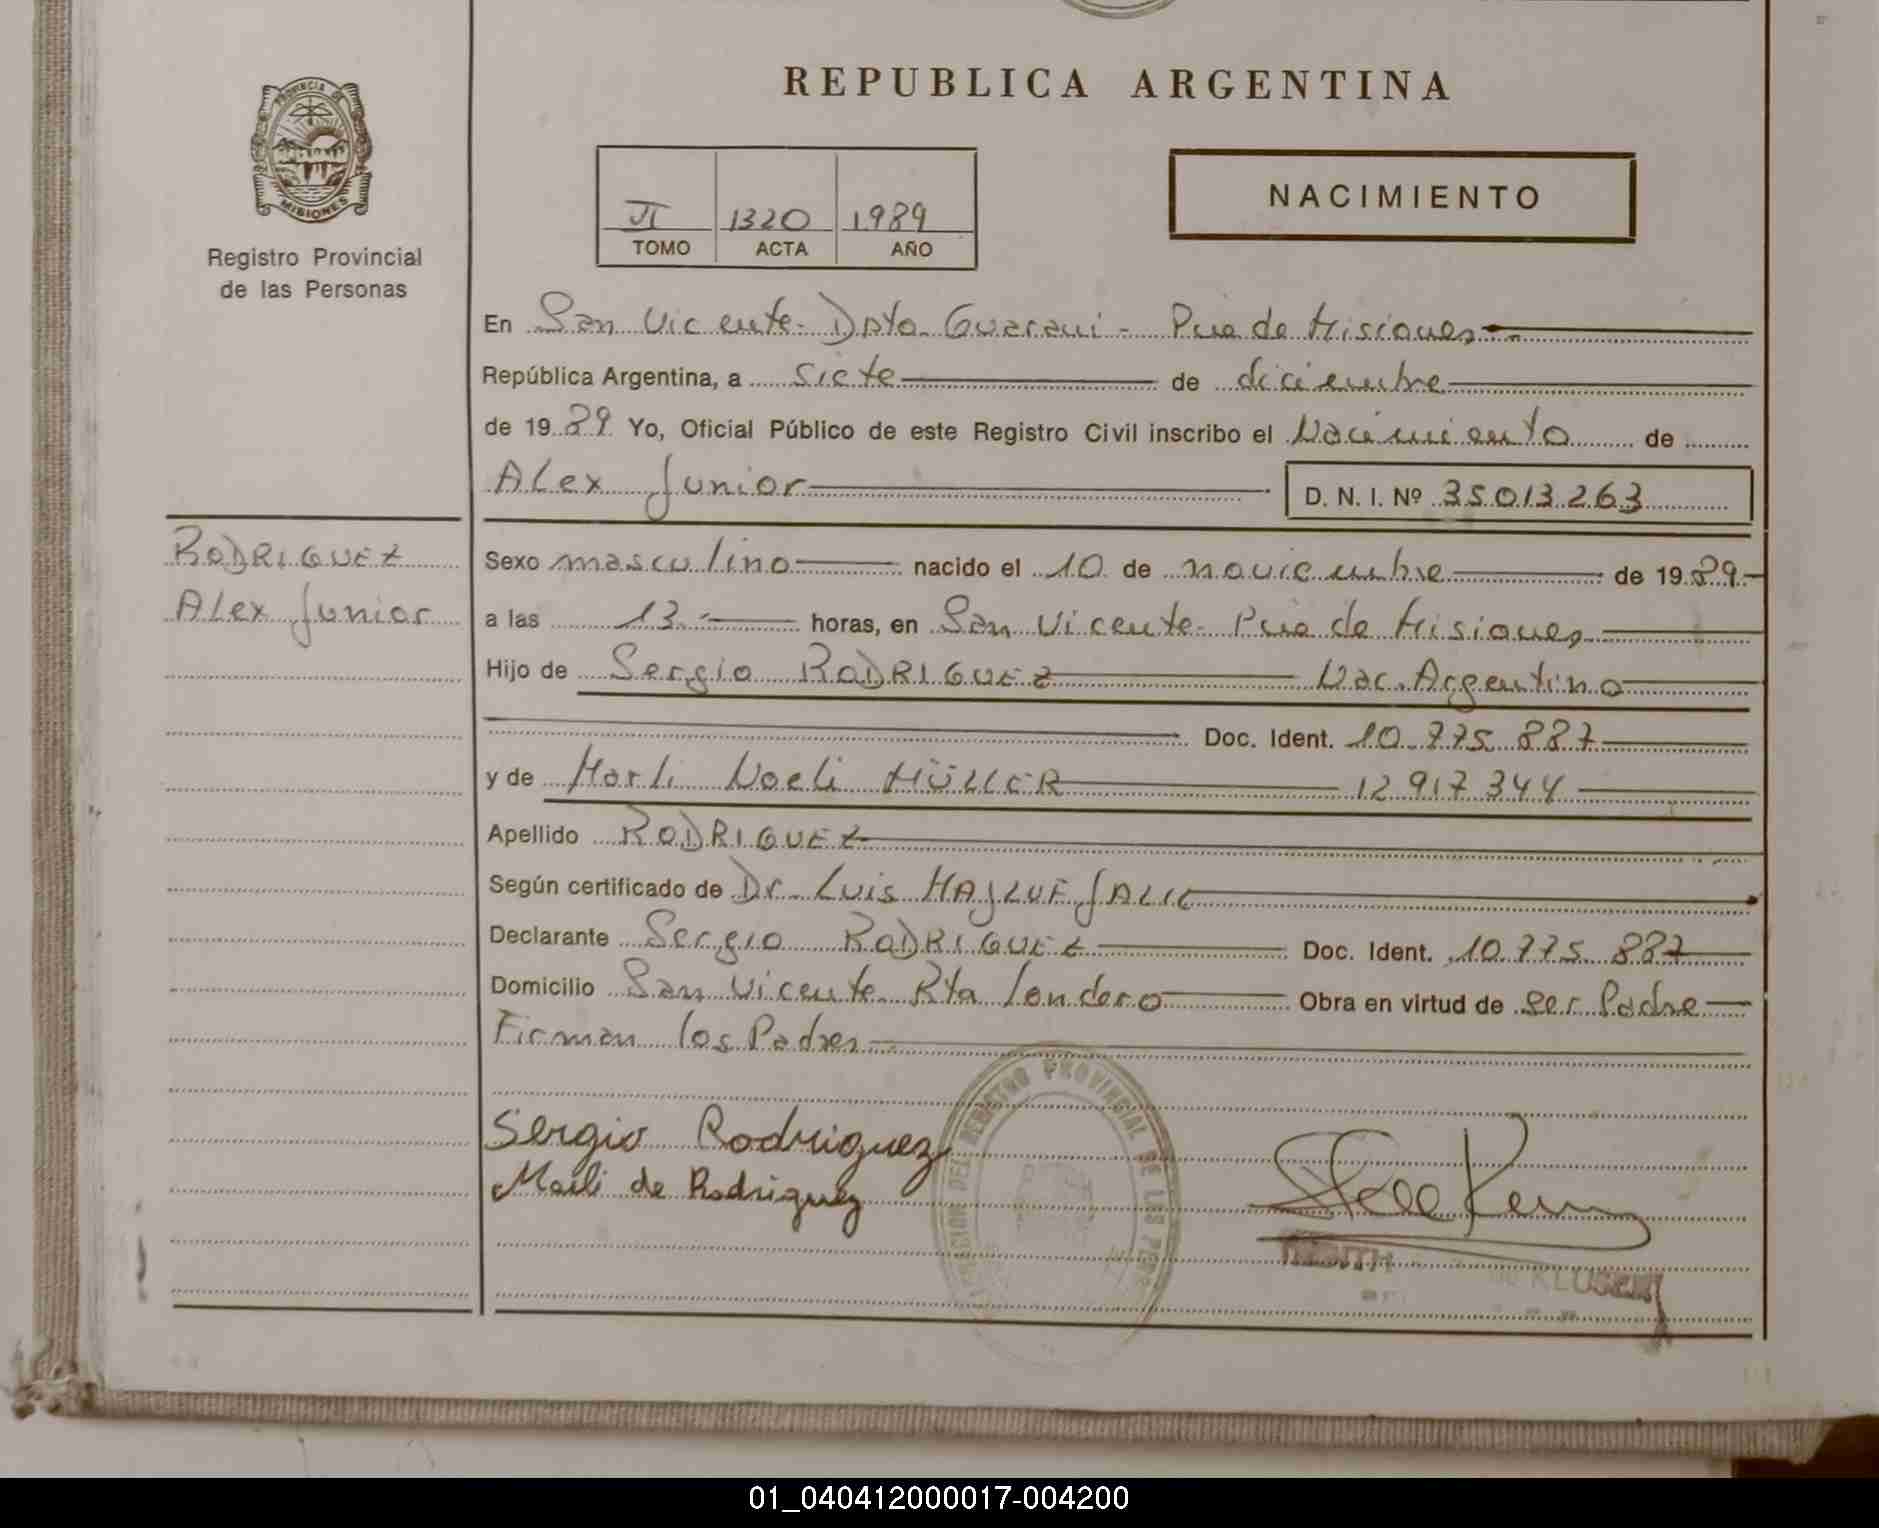 REPUBLICA ARGENTINA
PROVINCIA DE
MISIONES
Registro Provincial
de las Personas
II 1320 1989
TOMO ACTA AÑO
NACIMIENTO
En San Vicente - Dpto. Guarani - Pcia de Misiones
República Argentina, a siete de diciembre
de 1989 Yo, Oficial Público de este Registro Civil inscribo el Nacimiento de
Alex Junior D. N. I. Nº 35.013.263
RODRIGUEZ
Alex Junior
Sexo masculino nacido el 10 de noviembre de 1989
a las 13 horas, en San Vicente - Pcia de Misiones
Hijo de Sergio RODRIGUEZ Nac. Argentino
Doc. Ident. 10.775.887
y de Marli Noeli MÜLLER 12917344
Apellido RODRIGUEZ
Según certificado de Dr. Luis
Declarante Sergio RODRIGUEZ Doc. Ident. 10.775.887
Domicilio San Vicente Rta Londero Obra en virtud de ser Padre
Firman los Padres
Sergio Rodriguez
Marli de Rodriguez
DEL REGISTRO PROVINCIAL DE LAS
de KLUSEN
01_040412000017-004200